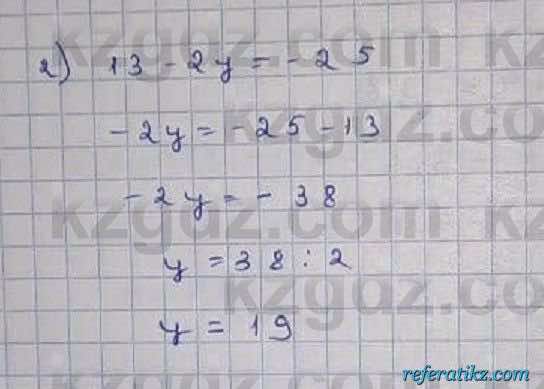 kzgdz.com
2) 13 - 2y = - 25
- 2y = - 25 - 13
kzgdz.com
- 2y = - 38
kzgdz.com
y = 38 : 2
kzgdz.com
y = 19
referatikz.com